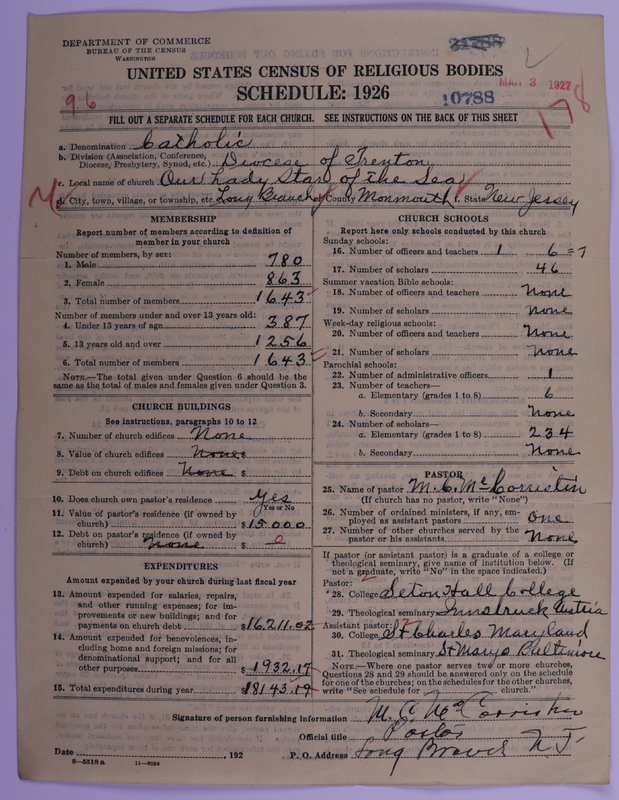 DEPARTMENT OF COMMERCE
BUREAU OF THE CENSUS
WASHINGTON
UNITED STATES CENSUS OF RELIGIOUS BODIES
MAR 3 1927
SCHEDULE: 1926
96
10788
178
FILL OUT A SEPARATE SCHEDULE FOR EACH CHURCH. SEE INSTRUCTIONS ON THE BACK OF THIS SHEET
a. Denomination Catholic
b. Division (Association, Conference, Diocese, Presbytery, Synod, etc.) Diocese of Trenton
c. Local name of church Our Lady Star of the Sea
d. City, town, village, or township, etc. Long Branch e. County Monmouth f. State New Jersey
MEMBERSHIP
Report number of members according to definition of
member in your church
Number of members, by sex:
1. Male 780
2. Female 863
3. Total number of members 1643
Number of members under and over 13 years old:
4. Under 13 years of age 387
5. 13 years old and over 1256
6. Total number of members 1643
NOTE.—The total given under Question 6 should be the
same as the total of males and females given under Question 3.
CHURCH BUILDINGS
See instructions, paragraphs 10 to 12
7. Number of church edifices None
8. Value of church edifices None $
9. Debt on church edifices None $
10. Does church own pastor's residence Yes
Yes or No
11. Value of pastor's residence (if owned by
church) $15000
12. Debt on pastor's residence (if owned by
church) None $ 0
EXPENDITURES
Amount expended by your church during last fiscal year
13. Amount expended for salaries, repairs,
and other running expenses; for im-
provements or new buildings; and for
payments on church debt $16211.02
14. Amount expended for benevolences, in-
cluding home and foreign missions; for
denominational support; and for all
other purposes $1932.17
15. Total expenditures during year $18143.19
CHURCH SCHOOLS
Report here only schools conducted by this church
Sunday schools:
16. Number of officers and teachers 1 6 =7
17. Number of scholars 46
Summer vacation Bible schools:
18. Number of officers and teachers None
19. Number of scholars None
Week-day religious schools:
20. Number of officers and teachers None
21. Number of scholars None
Parochial schools:
22. Number of administrative officers 1
23. Number of teachers—
a. Elementary (grades 1 to 8) 6
b. Secondary None
24. Number of scholars—
a. Elementary (grades 1 to 8) 234
b. Secondary None
PASTOR
25. Name of pastor M. C. McCorristin
(If church has no pastor, write "None")
26. Number of ordained ministers, if any, em-
ployed as assistant pastors One
27. Number of other churches served by the
pastor or his assistants None
If pastor (or assistant pastor) is a graduate of a college or
theological seminary, give name of institution below. (If
not a graduate, write "No" in the space indicated.)
Pastor:
28. College Seton Hall College
29. Theological seminary Innsbruck Austria
Assistant pastor:
30. College St Charles Maryland
31. Theological seminary St Marys Baltimore
NOTE.—Where one pastor serves two or more churches,
Questions 28 and 29 should be answered only on the schedule
for one of the churches; on the schedules for the other churches,
write "See schedule for church."
Signature of person furnishing information M. C. McCorristin
Official title Pastor
Date , 192 P. O. Address Long Branch N J.
8-5518 a 11-9054